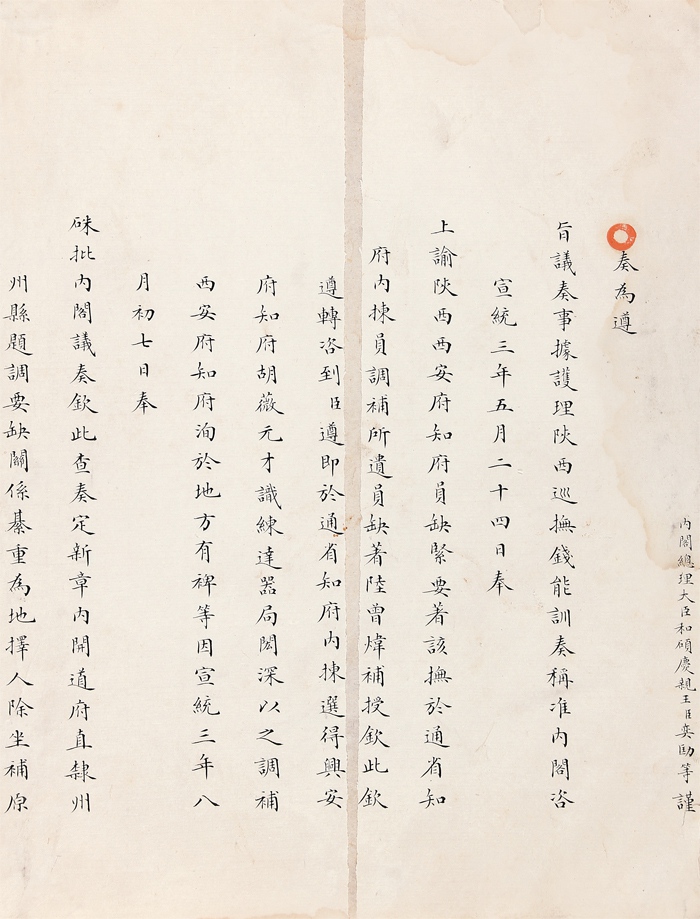 內閣總理大臣和碩慶親王臣奕劻等謹
奏為遵
旨議奏事據護理陝西巡撫錢能訓奏稱准內閣咨
宣統三年五月二十四日奉
上諭陝西西安府知府員缺緊要著該撫於通省知
府內揀員調補所遺員缺著陸曾煒補授欽此欽
遵轉咨到臣遵即於通省知府內揀選得興安
府知府胡薇元才識練達器局閎深以之調補
西安府知府洵於地方有裨等因宣統三年八
月初七日奉
硃批內閣議奏欽此查奏定新章內開道府直隸州
州縣題調要缺關係綦重為地擇人除坐補原